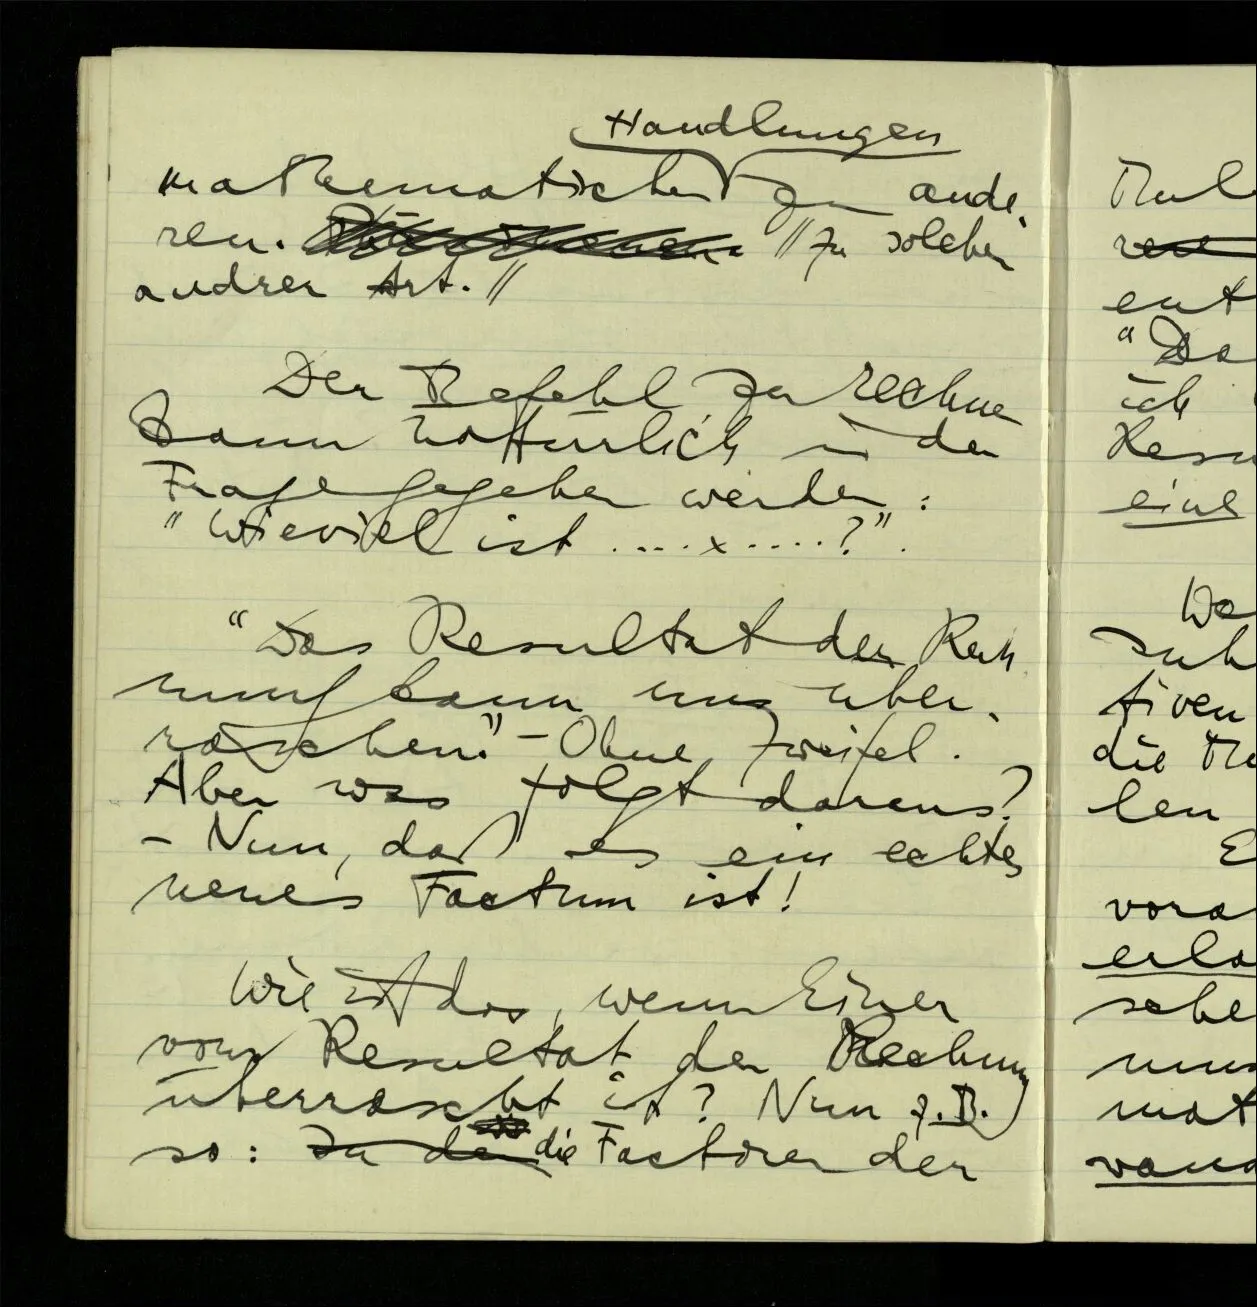 Handlungen
mathematischen zu ande-
ren. // zu solchen
andrer Art. //
Der Befehl zu rechnen
kann natürlich in der
Frage gegeben werden:
"Wieviel ist ....x....?".
"Das Resultat der Rech-
nung kann uns über-
raschen." – Ohne Zweifel.
Aber was folgt daraus?
– Nun, daß es ein echtes
neues Factum ist!
Wie ist das, wenn Einer
vom Resultat der Rechnung
überrascht ist? Nun z.B.
so: Zu den die Factoren der
ent
"Da
ich
Resu
eine
We
tiven
die
len
E
vora
sehe
mat